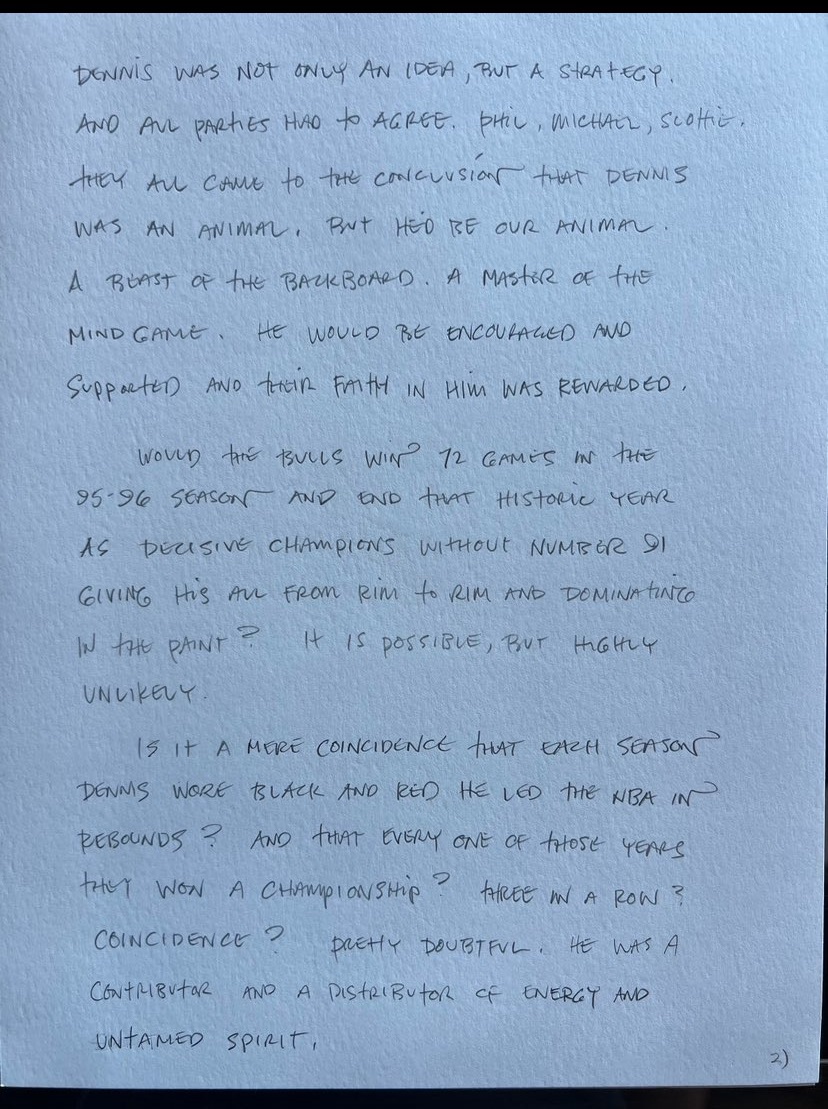 DENNIS WAS NOT ONLY AN IDEA, BUT A STRATEGY.
AND ALL PARTIES HAD TO AGREE. PHIL, MICHAEL, SCOTTIE.
THEY ALL CAME TO THE CONCLUSION THAT DENNIS
WAS AN ANIMAL. BUT HE'D BE OUR ANIMAL.
A BEAST OF THE BACKBOARD. A MASTER OF THE
MIND GAME. HE WOULD BE ENCOURAGED AND
SUPPORTED AND THEIR FAITH IN HIM WAS REWARDED.
WOULD THE BULLS WIN 72 GAMES IN THE
95-96 SEASON AND END THAT HISTORIC YEAR
AS DECISIVE CHAMPIONS WITHOUT NUMBER 91
GIVING HIS ALL FROM RIM TO RIM AND DOMINATING
IN THE PAINT? IT IS POSSIBLE, BUT HIGHLY
UNLIKELY.
IS IT A MERE COINCIDENCE THAT EACH SEASON
DENNIS WORE BLACK AND RED HE LED THE NBA IN
REBOUNDS? AND THAT EVERY ONE OF THOSE YEARS
THEY WON A CHAMPIONSHIP? THREE IN A ROW?
COINCIDENCE? PRETTY DOUBTFUL. HE WAS A
CONTRIBUTOR AND A DISTRIBUTOR OF ENERGY AND
UNTAMED SPIRIT.
2)